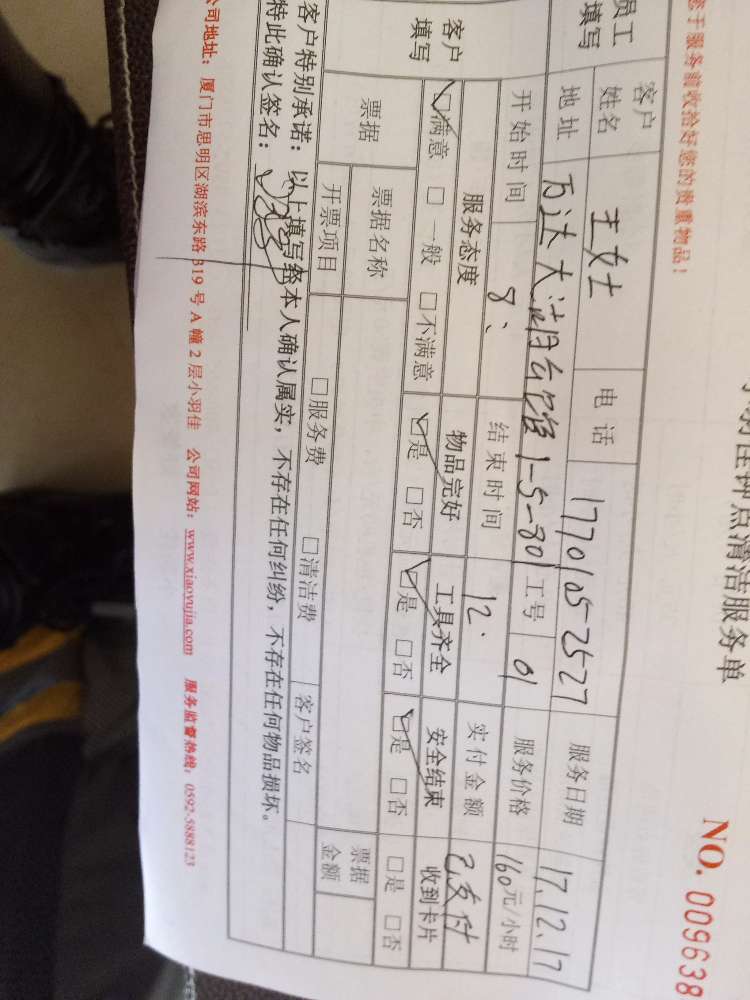 羽佳钟点清洁服务单
NO. 009638
您于服务前收拾好您的贵重物品！
员工填写
客户姓名 王女士 电话 17701052527 服务日期 17.12.17
地址 万达大湖公馆1-5-801 工号 01 服务价格 160元/小时
开始时间 8： 结束时间 12. 实付金额 已支付
客户填写
服务态度 物品完好 工具齐全 安全结束 收到卡片
☑满意 □一般 □不满意 ☑是 □否 ☑是 □否 ☑是 □否 □是 □否
票据 票据名称 票据金额
开票项目 □服务费 □清洁费 客户签名
客户特别承诺：以上填写经本人确认属实，不存在任何纠纷，不存在任何物品损坏。
特此确认签名：
公司地址：厦门市思明区湖滨东路319号A幢2层小羽佳 公司网站：www.xiaoyujia.com 服务监督热线：0592-5888123